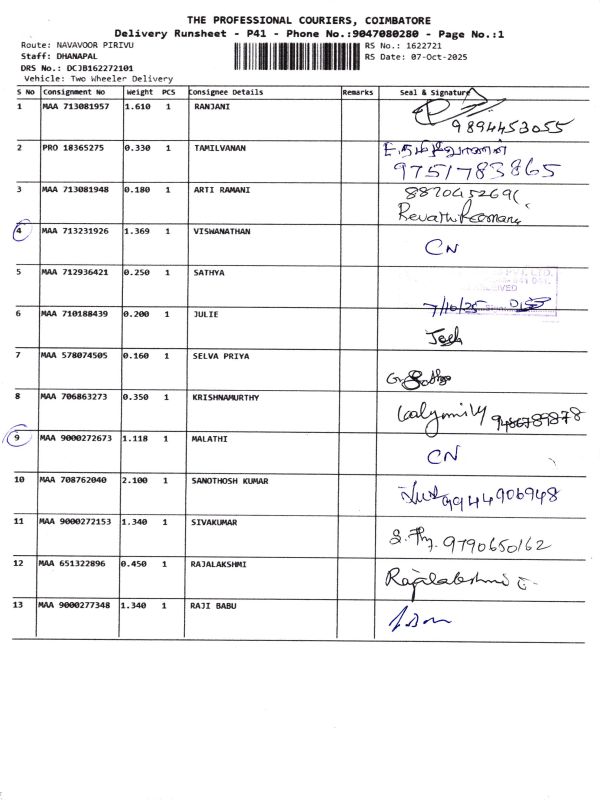 THE PROFESSIONAL COURIERS, COIMBATORE
Delivery Runsheet - P41 - Phone No.:9047080280 - Page No.:1
Route: NAVAVOOR PIRIVU RS No.: 1622721
Staff: DHANAPAL RS Date: 07-Oct-2025
DRS No.: DCJB162272101
Vehicle: Two Wheeler Delivery
S No Consignment No Weight PCS Consignee Details Remarks Seal & Signature
1 MAA 713081957 1.610 1 RANJANI
9894453055
2 PRO 18365275 0.330 1 TAMILVANAN
9751783865
3 MAA 713081948 0.180 1 ARTI RAMANI
Revathi Ramani
4 MAA 713231926 1.369 1 VISWANATHAN CN
5 MAA 712936421 0.250 1 SATHYA
7/10/25
6 MAA 710188439 0.200 1 JULIE
7 MAA 578074505 0.160 1 SELVA PRIYA
8 MAA 706863273 0.350 1 KRISHNAMURTHY
9486789878
9 MAA 9000272673 1.118 1 MALATHI CN
10 MAA 708762040 2.100 1 SANOTHOSH KUMAR
9944906948
11 MAA 9000272153 1.340 1 SIVAKUMAR
9790650162
12 MAA 651322896 0.450 1 RAJALAKSHMI
Rajalakshmi
13 MAA 9000277348 1.340 1 RAJI BABU